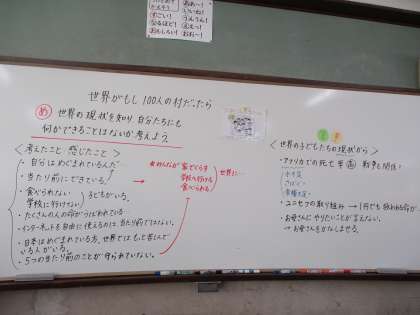 おぉ～!
いいね!
うんうん!
すごい!
なるほど!
世界がもし100人の村だったら
め 世界の現状を知り自分たちにも
何ができることはないか考えよう。
<考えたこと・感じたこと>
・自分はめぐまれているんだ…
・当たり前にできている。
・食べられない
学校に行けない
子どもがいる。
・たくさんの人の命がうばわれている
・インターネットを自由に使えるのは、当たり前ではない。
・日本はめぐまれている方。世界では、もっと苦しんで
いる人がいる。
・5つの当たり前のことが守られていない。
みんなが
家でくらす
学校へ行ける
食べられる
世界に…
<世界の子どもたちの現状から>
・アフリカでの死亡率 高 戦争と関係
・ユニセフの取り組み → 1円でも救われる命が
・お母さんにやりたいことが言えない。
→お母さんをかなしませる。